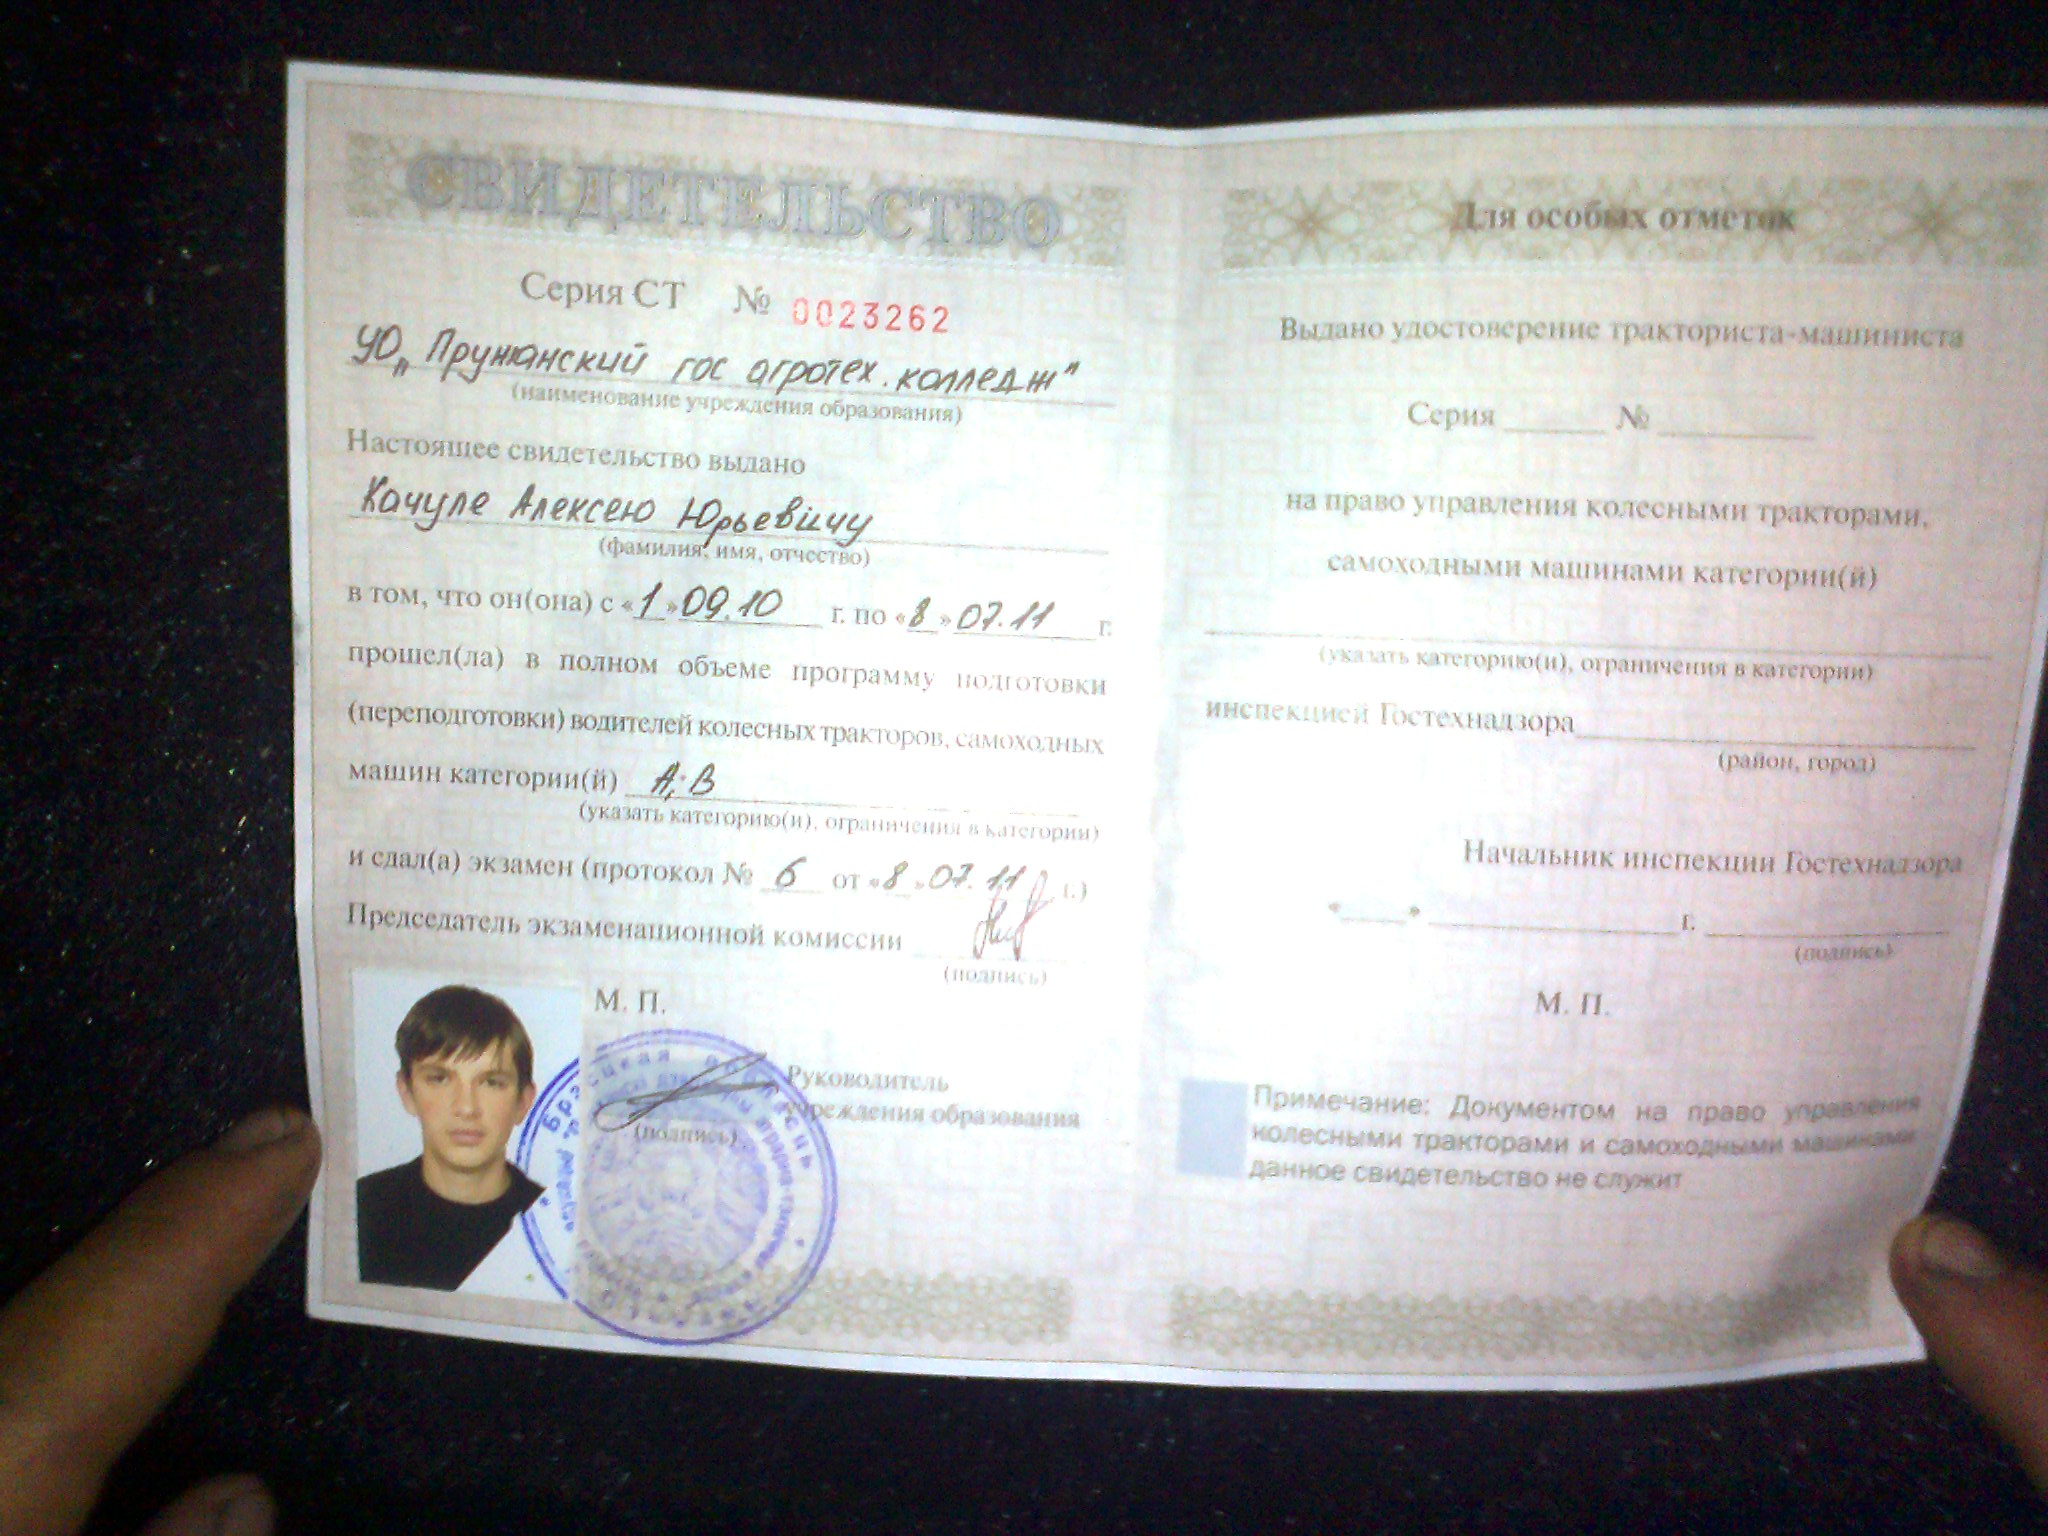 СВИДЕТЕЛЬСТВО
Серия СТ № 0023262
УО „Пружанский гос агротех. колледж"
(наименование учреждения образования)
Настоящее свидетельство выдано
Качуле Алексею Юрьевичу
(фамилия, имя, отчество)
в том, что он(она) с «1» 09.10 г. по «8» 07.11 г.
прошел(ла) в полном объеме программу подготовки
(переподготовки) водителей колесных тракторов, самоходных
машин категории(й) А; В
(указать категорию(и), ограничения в категории)
и сдал(а) экзамен (протокол № 6 от «8» 07.11 г.)
Председатель экзаменационной комиссии
(подпись)
М. П.
Руководитель
учреждения образования
(подпись)
Для особых отметок
Выдано удостоверение тракториста-машиниста
Серия ______ № _________
на право управления колесными тракторами,
самоходными машинами категории(й)
(указать категорию(и), ограничения в категории)
инспекцией Гостехнадзора
(район, город)
Начальник инспекции Гостехнадзора
«____» ______________ г. ______________
(подпись)
М. П.
Примечание: Документом на право управления
колесными тракторами и самоходными машинами
данное свидетельство не служит